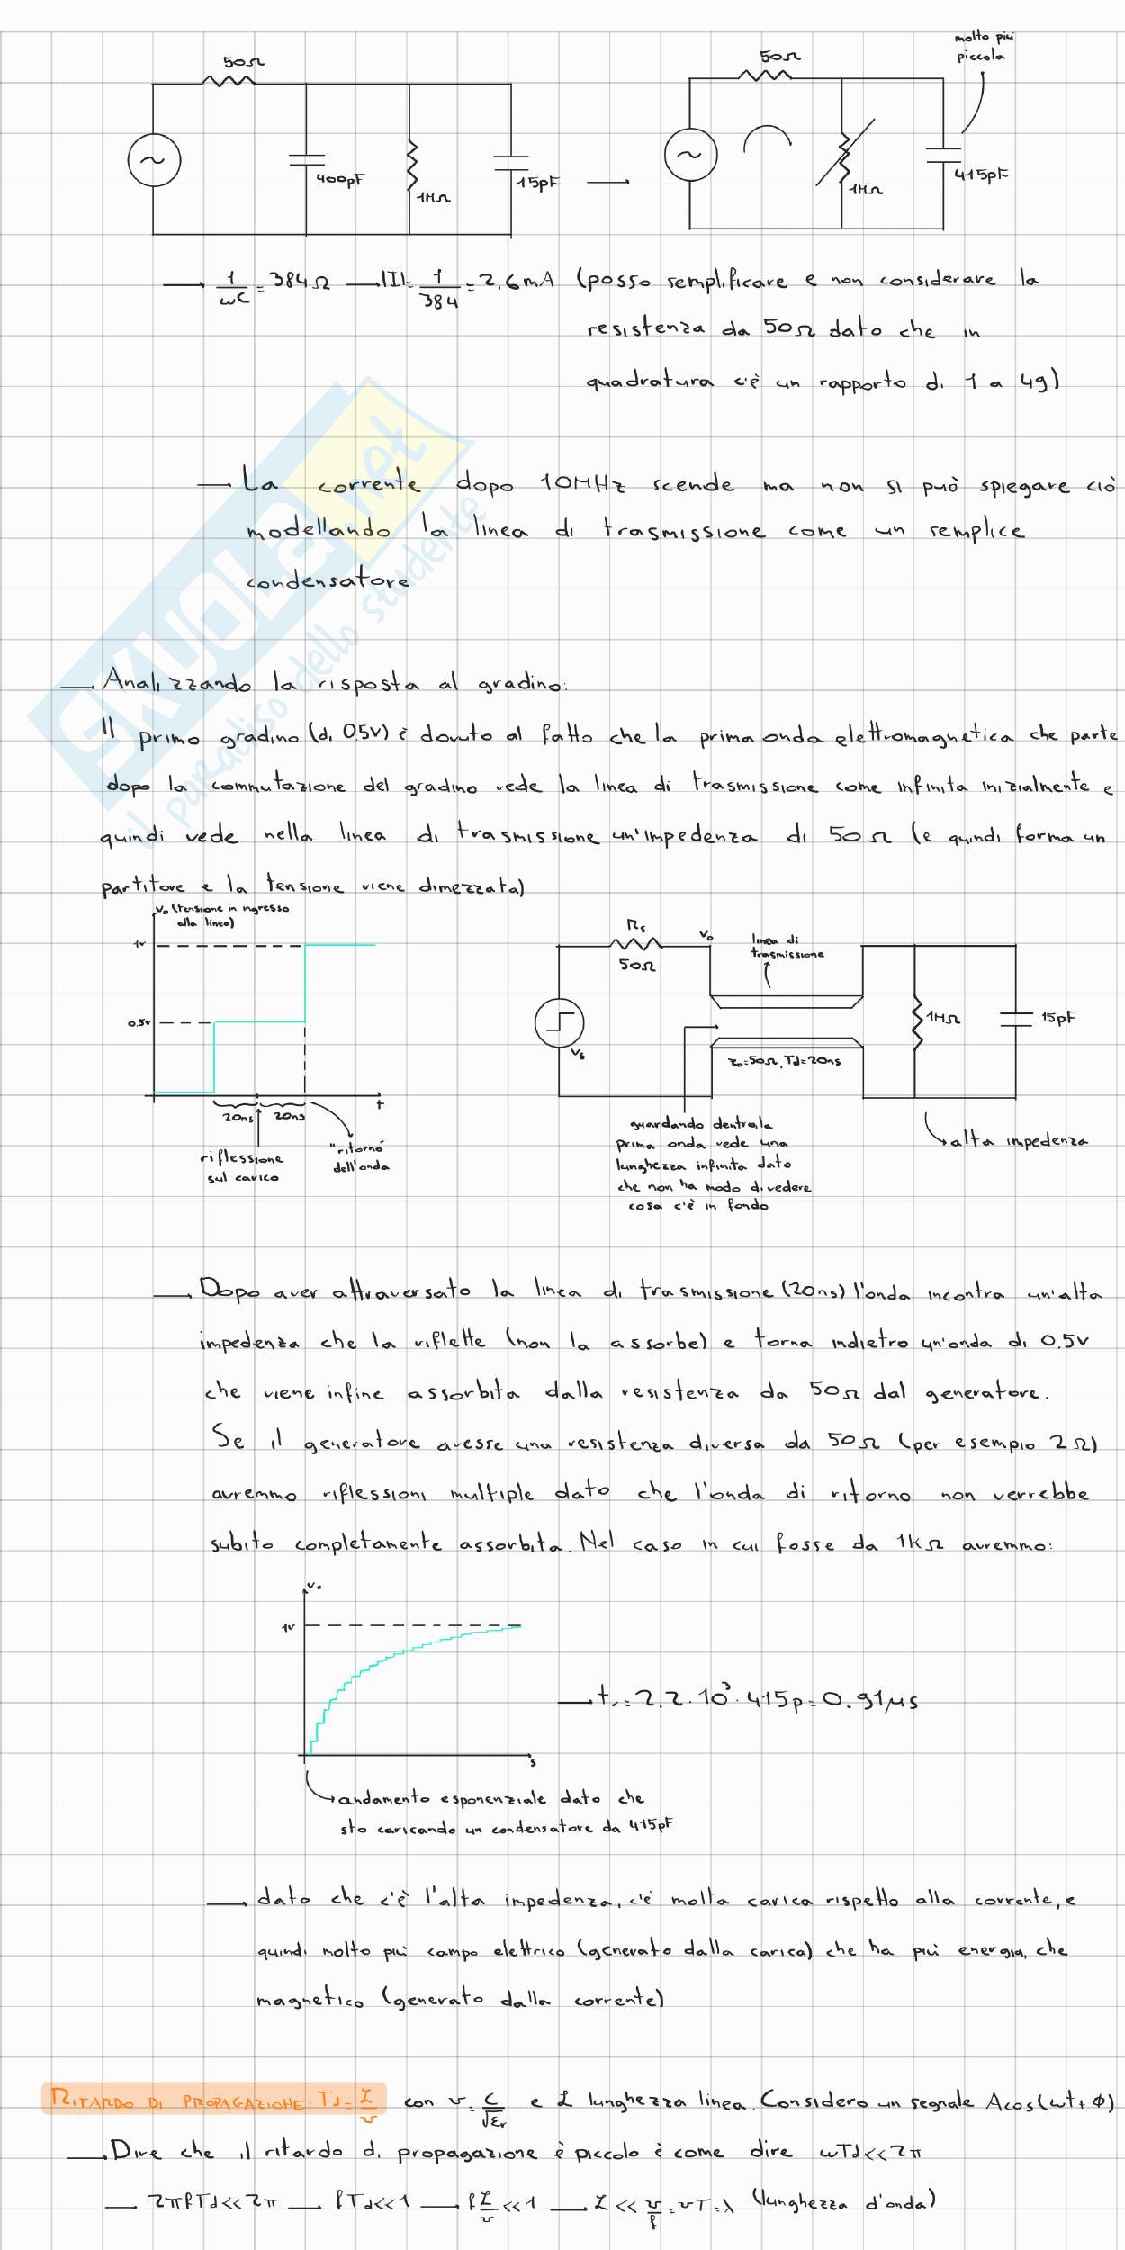 50Ω
400pF
1MΩ
15pF
50Ω
molto più
piccola
1MΩ
415pF
→ 1/ωC = 384Ω → |I| = 1/384 = 2,6mA (posso semplificare e non considerare la
resistenza da 50Ω dato che in
quadratura c'è un rapporto di 1 a 49)
→ La corrente dopo 10MHz scende ma non si può spiegare ciò
modellando la linea di trasmissione come un semplice
condensatore
SKUOLA.net
il paradiso dello studente
→ Analizzando la risposta al gradino:
Il primo gradino (di 0.5V) è dovuto al fatto che la prima onda elettromagnetica che parte
dopo la commutazione del gradino vede la linea di trasmissione come infinita inizialmente e
quindi vede nella linea di trasmissione un'impedenza di 50Ω (e quindi forma un
partitore e la tensione viene dimezzata)
V₀ (tensione in ingresso
alla linea)
1V
0.5V
20ns
20ns
t
riflessione
sul carico
"ritorno"
dell'onda
50Ω
V₀
linea di
trasmissione
Z₀=50Ω, Td=20ns
1MΩ
15pF
guardando dentro la
prima onda vede una
lunghezza infinita dato
che non ha modo di vedere
cosa c'è in fondo
alta impedenza
→ Dopo aver attraversato la linea di trasmissione (20ns) l'onda incontra un'alta
impedenza che la riflette (non la assorbe) e torna indietro un'onda di 0.5V
che viene infine assorbita dalla resistenza da 50Ω dal generatore.
Se il generatore avesse una resistenza diversa da 50Ω (per esempio 2Ω)
avremmo riflessioni multiple dato che l'onda di ritorno non verrebbe
subito completamente assorbita. Nel caso in cui fosse da 1kΩ avremmo:
1V
→ tr = 2,2·10³·415p = 0.91μs
andamento esponenziale dato che
sto caricando un condensatore da 415pF
→ dato che c'è l'alta impedenza, c'è molta carica rispetto alla corrente, e
quindi molto più campo elettrico (generato dalla carica) che ha più energia, che
magnetico (generato dalla corrente)
RITARDO DI PROPAGAZIONE: Td = L/v con v = c/√εr e L lunghezza linea. Considero un segnale Acos(ωt+ϕ)
→ Dire che il ritardo di propagazione è piccolo è come dire ωTd<<2π
→ 2πfTd<<2π → fTd<<1 → f L/v <<1 → L << v/f = vT = λ (lunghezza d'onda)